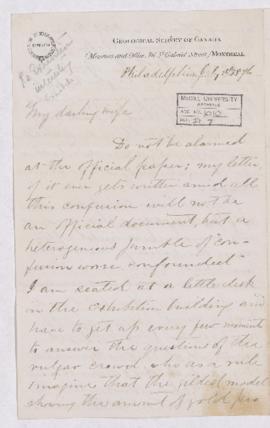 GEOLOGICAL SURVEY OF CANADA
Museum and Office, 76 St Gabriel Street, MONTREAL
Philadelphia July 1876
McGILL UNIVERSITY
ARCHIVES
ACC. NO.
REF.
My darling wife
Do not be alarmed
at the official paper; my letter,
if it ever gets written amid all
this confusion will not be
an official document, but a
heterogeneous jumble of "con-
fusion worse confounded"
I am seated at a little desk
in the exhibition building and
have to get up every few moments
to answer the questions of the
vulgar crowd, who as a rule
imagine that the gilded model
showing the amount of gold pro